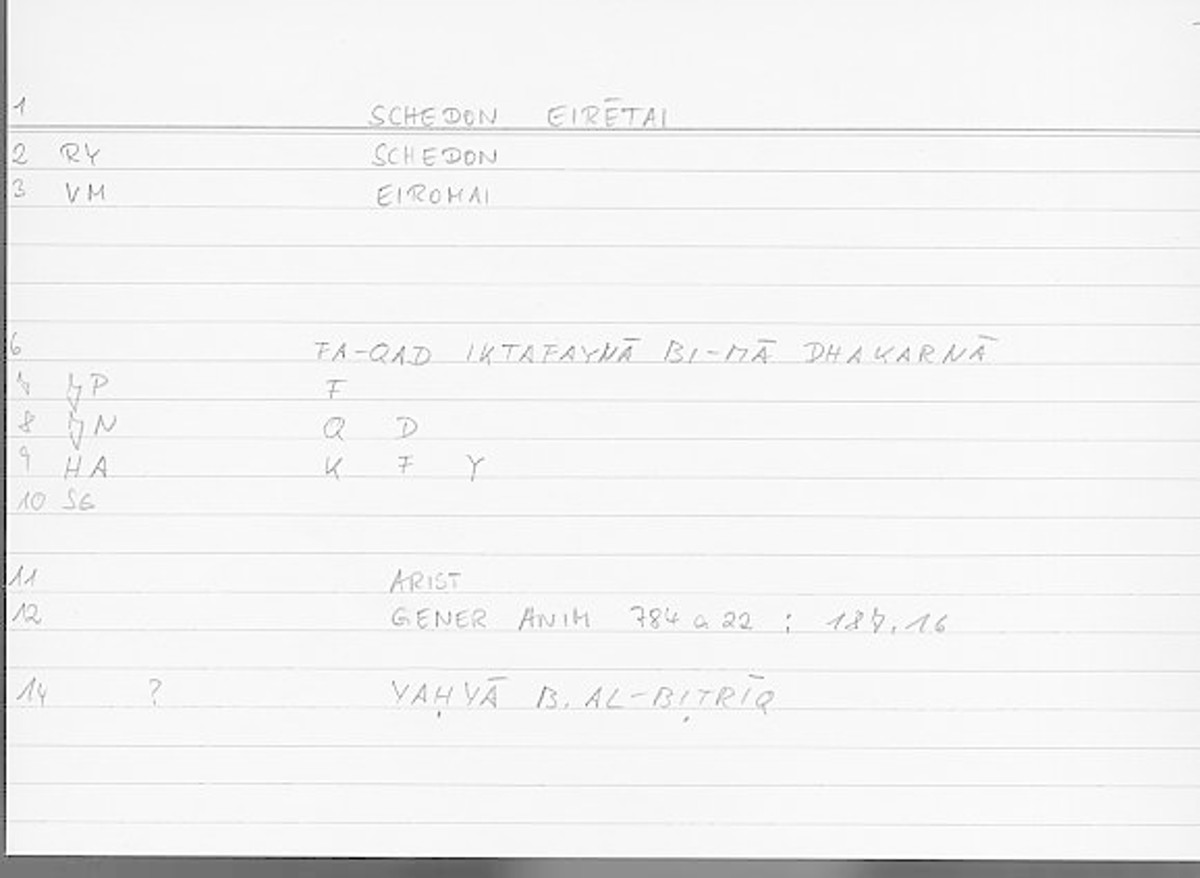 1 SCHEDON EIRĒTAI
2 RY SCHEDON
3 VM EIROMAI
6 FA-QAD IKTAFAYNĀ BI-MĀ DHAKARNĀ
7 P F
8 N Q D
9 HA K F Y
10 SG
11 ARIST
12 GENER ANIM 784 a 22 : 187.16
14 ? YAḤYĀ B. AL-BIṬRĪQ